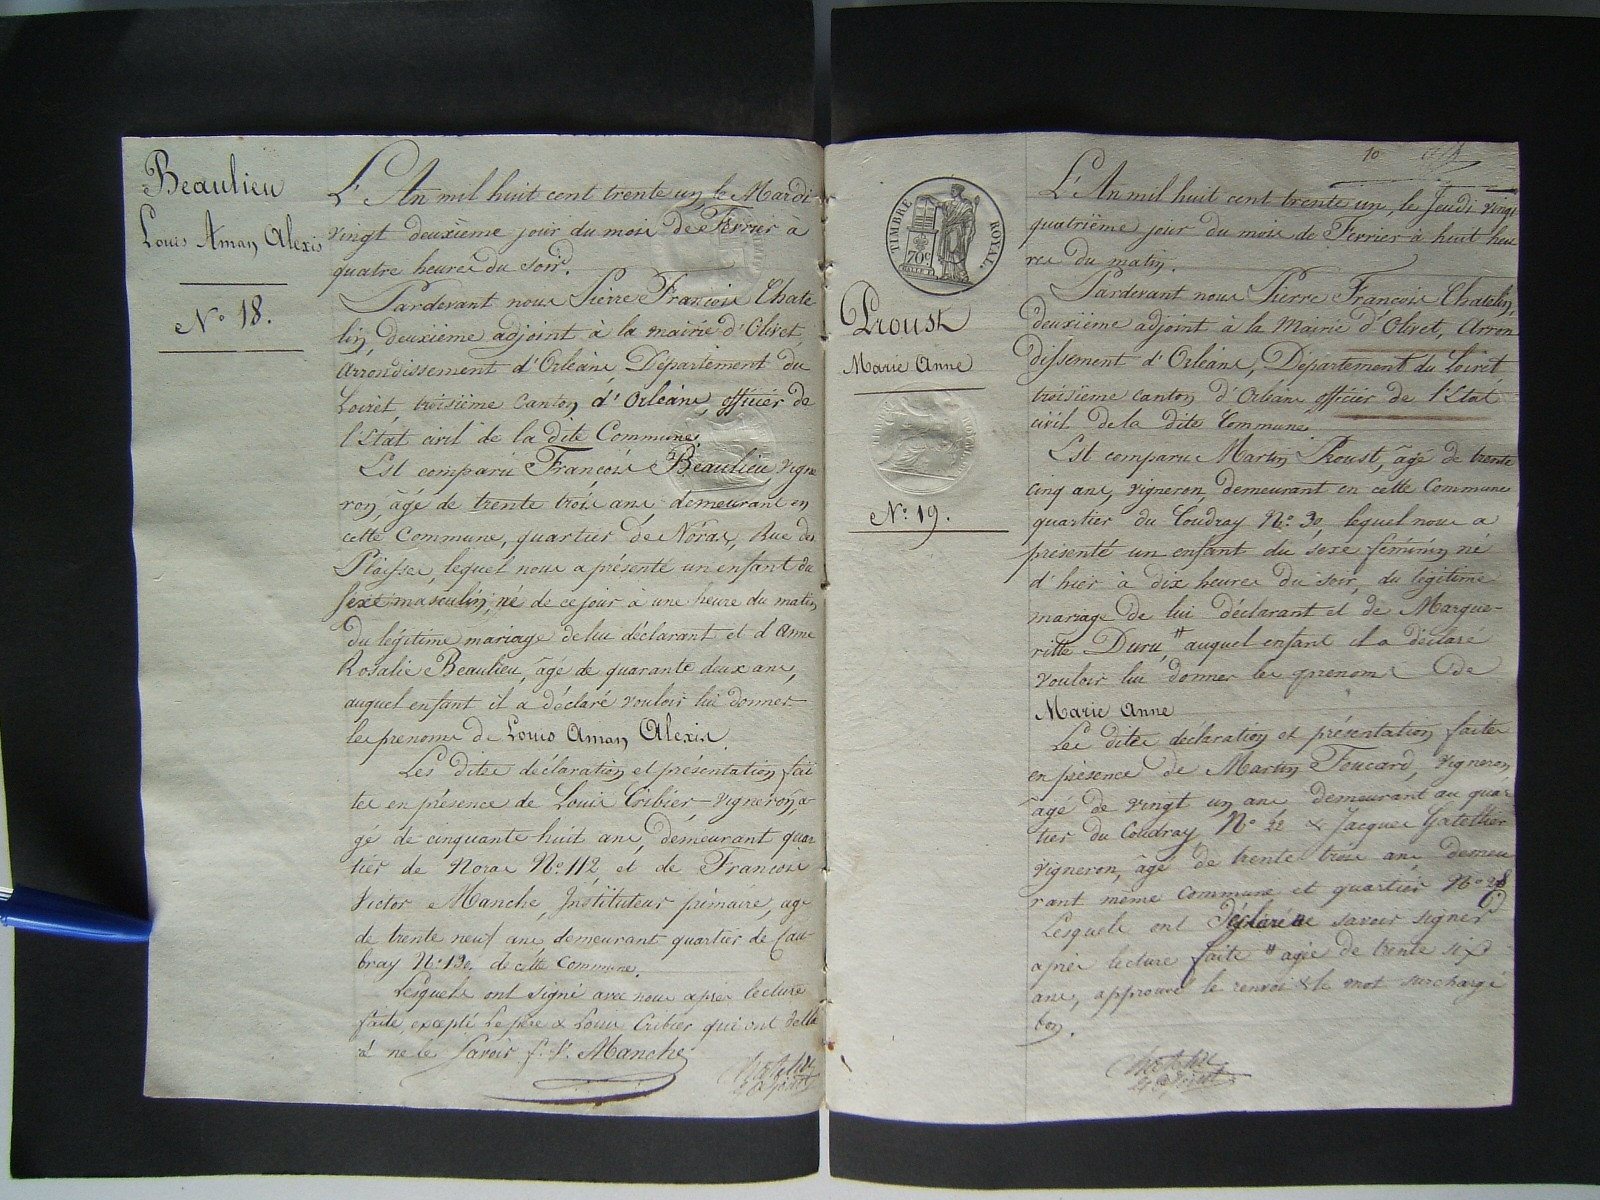 Beaulieu
Louis Aman Alexis
N° 18.
L'An mil huit cent trente un, le Mardi
vingt deuxième jour du mois de Fevrier à
quatre heures du soir.
Pardevant nous Pierre François Chate
lin, deuxième adjoint à la mairie d'Olivet,
arrondissement d'Orléans, Département du
Loiret, troisième canton d'Orléans, officier de
l'Etat civil de la dite Commune,
Est comparu François Beaulieu vigne
ron, âgé de trente trois ans, demeurant en
cette Commune, quartier de Noras, Rue des
Plaisse, lequel nous a présenté un enfant du
sexe masculin, né de ce jour à une heure du matin
du légitime mariage de lui déclarant et d'Anne
Rosalie Beaulieu, âgé de quarante deux ans,
auquel enfant il a déclaré vouloir lui donner
les prenoms de Louis Aman Alexis.
Les dites déclaration et présentation fai
tes en présence de Louis Cribier vigneron, a
gé de cinquante huit ans, demeurant quar
tier de Noras N° 112, et de François
Victor Manche, Instituteur primaire, agé
de trente neuf ans, demeurant quartier de Cau
bray N° 130. de cette Commune.
Lesquels ont signé avec nous après lecture
faite, excepté le père & Louis Cribier qui ont déclá
ré ne le savoir f. V. Manche
Chatelin
adjoint
10
TIMBRE ROYAL.
70c
Proust
Marie Anne
N° 19.
L'An mil huit cent trente un, le Jeudi vingt
quatrième jour du mois de Fevrier à huit heu
res du matin.
Pardevant nous Pierre François Chatelin,
deuxième adjoint à la Mairie d'Olivet, Arron
dissement d'Orléans, Département du Loiret
troisième canton d'Orléans officier de l'Etat
civil de la dite Commune.
Est comparu Martin Proust, âgé de trente
cinq ans, vigneron, demeurant en cette Commune
quartier du Coudray N° 30, lequel nous a
présenté un enfant du sexe féminin né
d'hier à dix heures du soir, du légitime
mariage de lui déclarant et de Margue-
ritte Duru, # auquel enfant il a déclaré
vouloir lui donner les prenoms de
Marie Anne
Les dites déclaration et présentation faites
en présence de Martin Foucard, vigneron,
âgé de vingt un ans demeurant au quar
tier du Coudray, N° 22 & Jacques Gatellier
vigneron, âgé de trente trois ans, demeu
rant même commune et quartier N° 28
Lesquels ont déclaré ne savoir signer
après lecture faite # agée de trente six
ans, approuvé le renvoi & le mot surchargé
bon.
Chatelin
adjoint